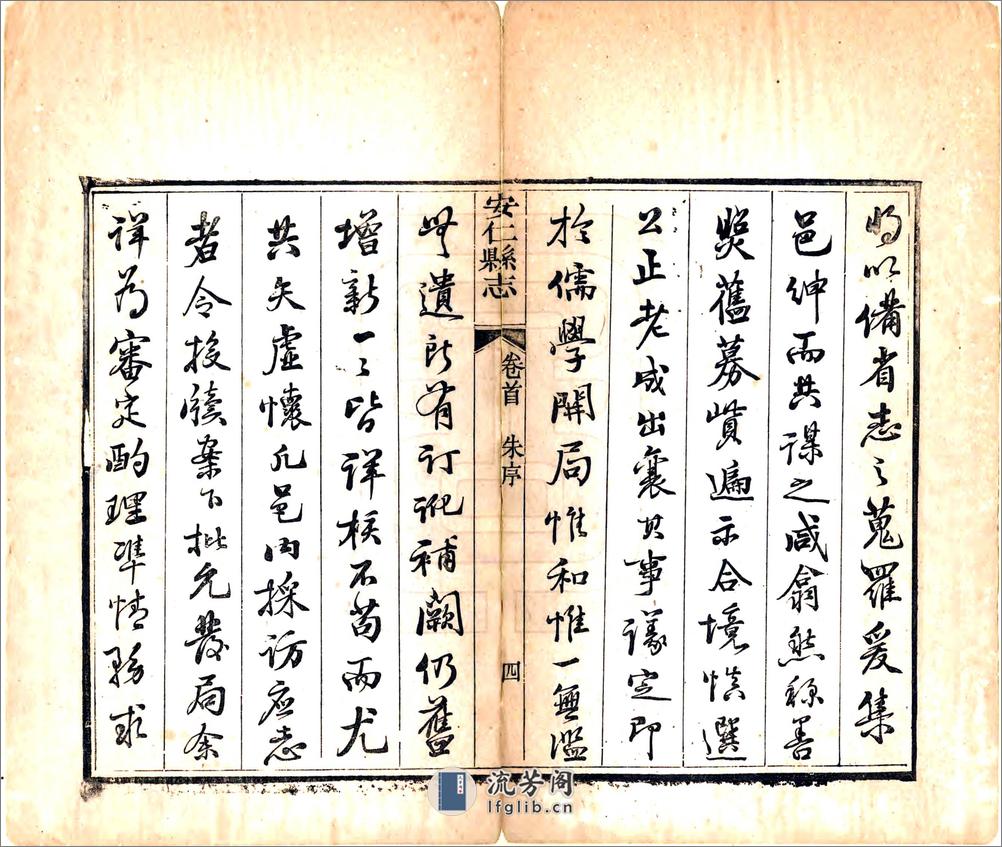 為以備省志之蒐羅爰集
邑紳而共謀之咸翕然稱善
照舊募貲遍示合境慎選
公正老成出襄其事議定即
於儒學開局惟和惟一無濫
安仁縣志
卷首 朱序
四
無遺所有訂訛補闕仍舊
增新一一皆詳核不苟而尤
共矢虛懷凡邑內採訪應志
者令投牘案下批允發局余
詳為審定酌理準情務求
流芳阁
lfglib.cn